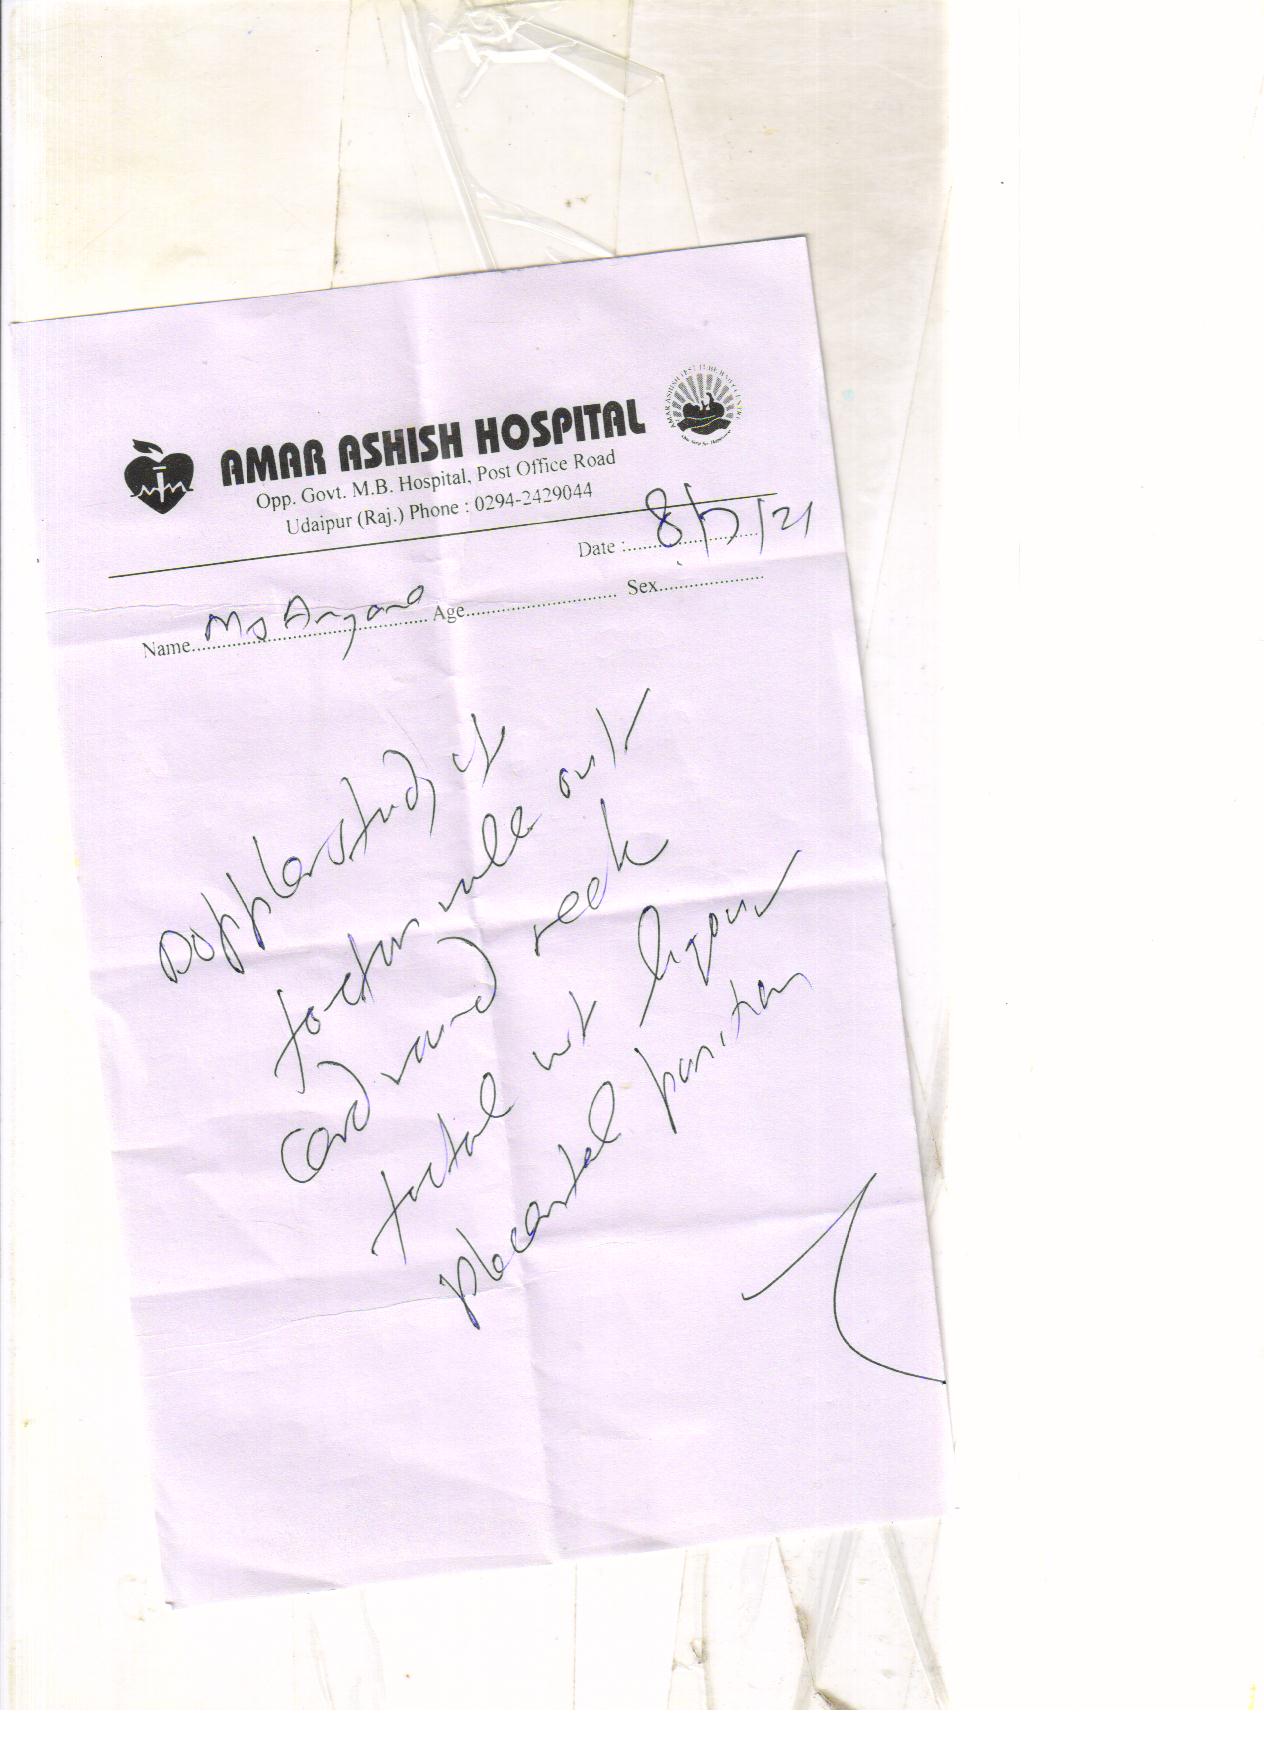 AMAR ASHISH HOSPITAL
Opp. Govt. M.B. Hospital, Post Office Road
Udaipur (Raj.) Phone : 0294-2429044
Date :........................ 8/7/21
Name........................ Age........................ Sex........................
Doppler study of
foetus rule out
cord round neck
foetal wt liquor
placental position